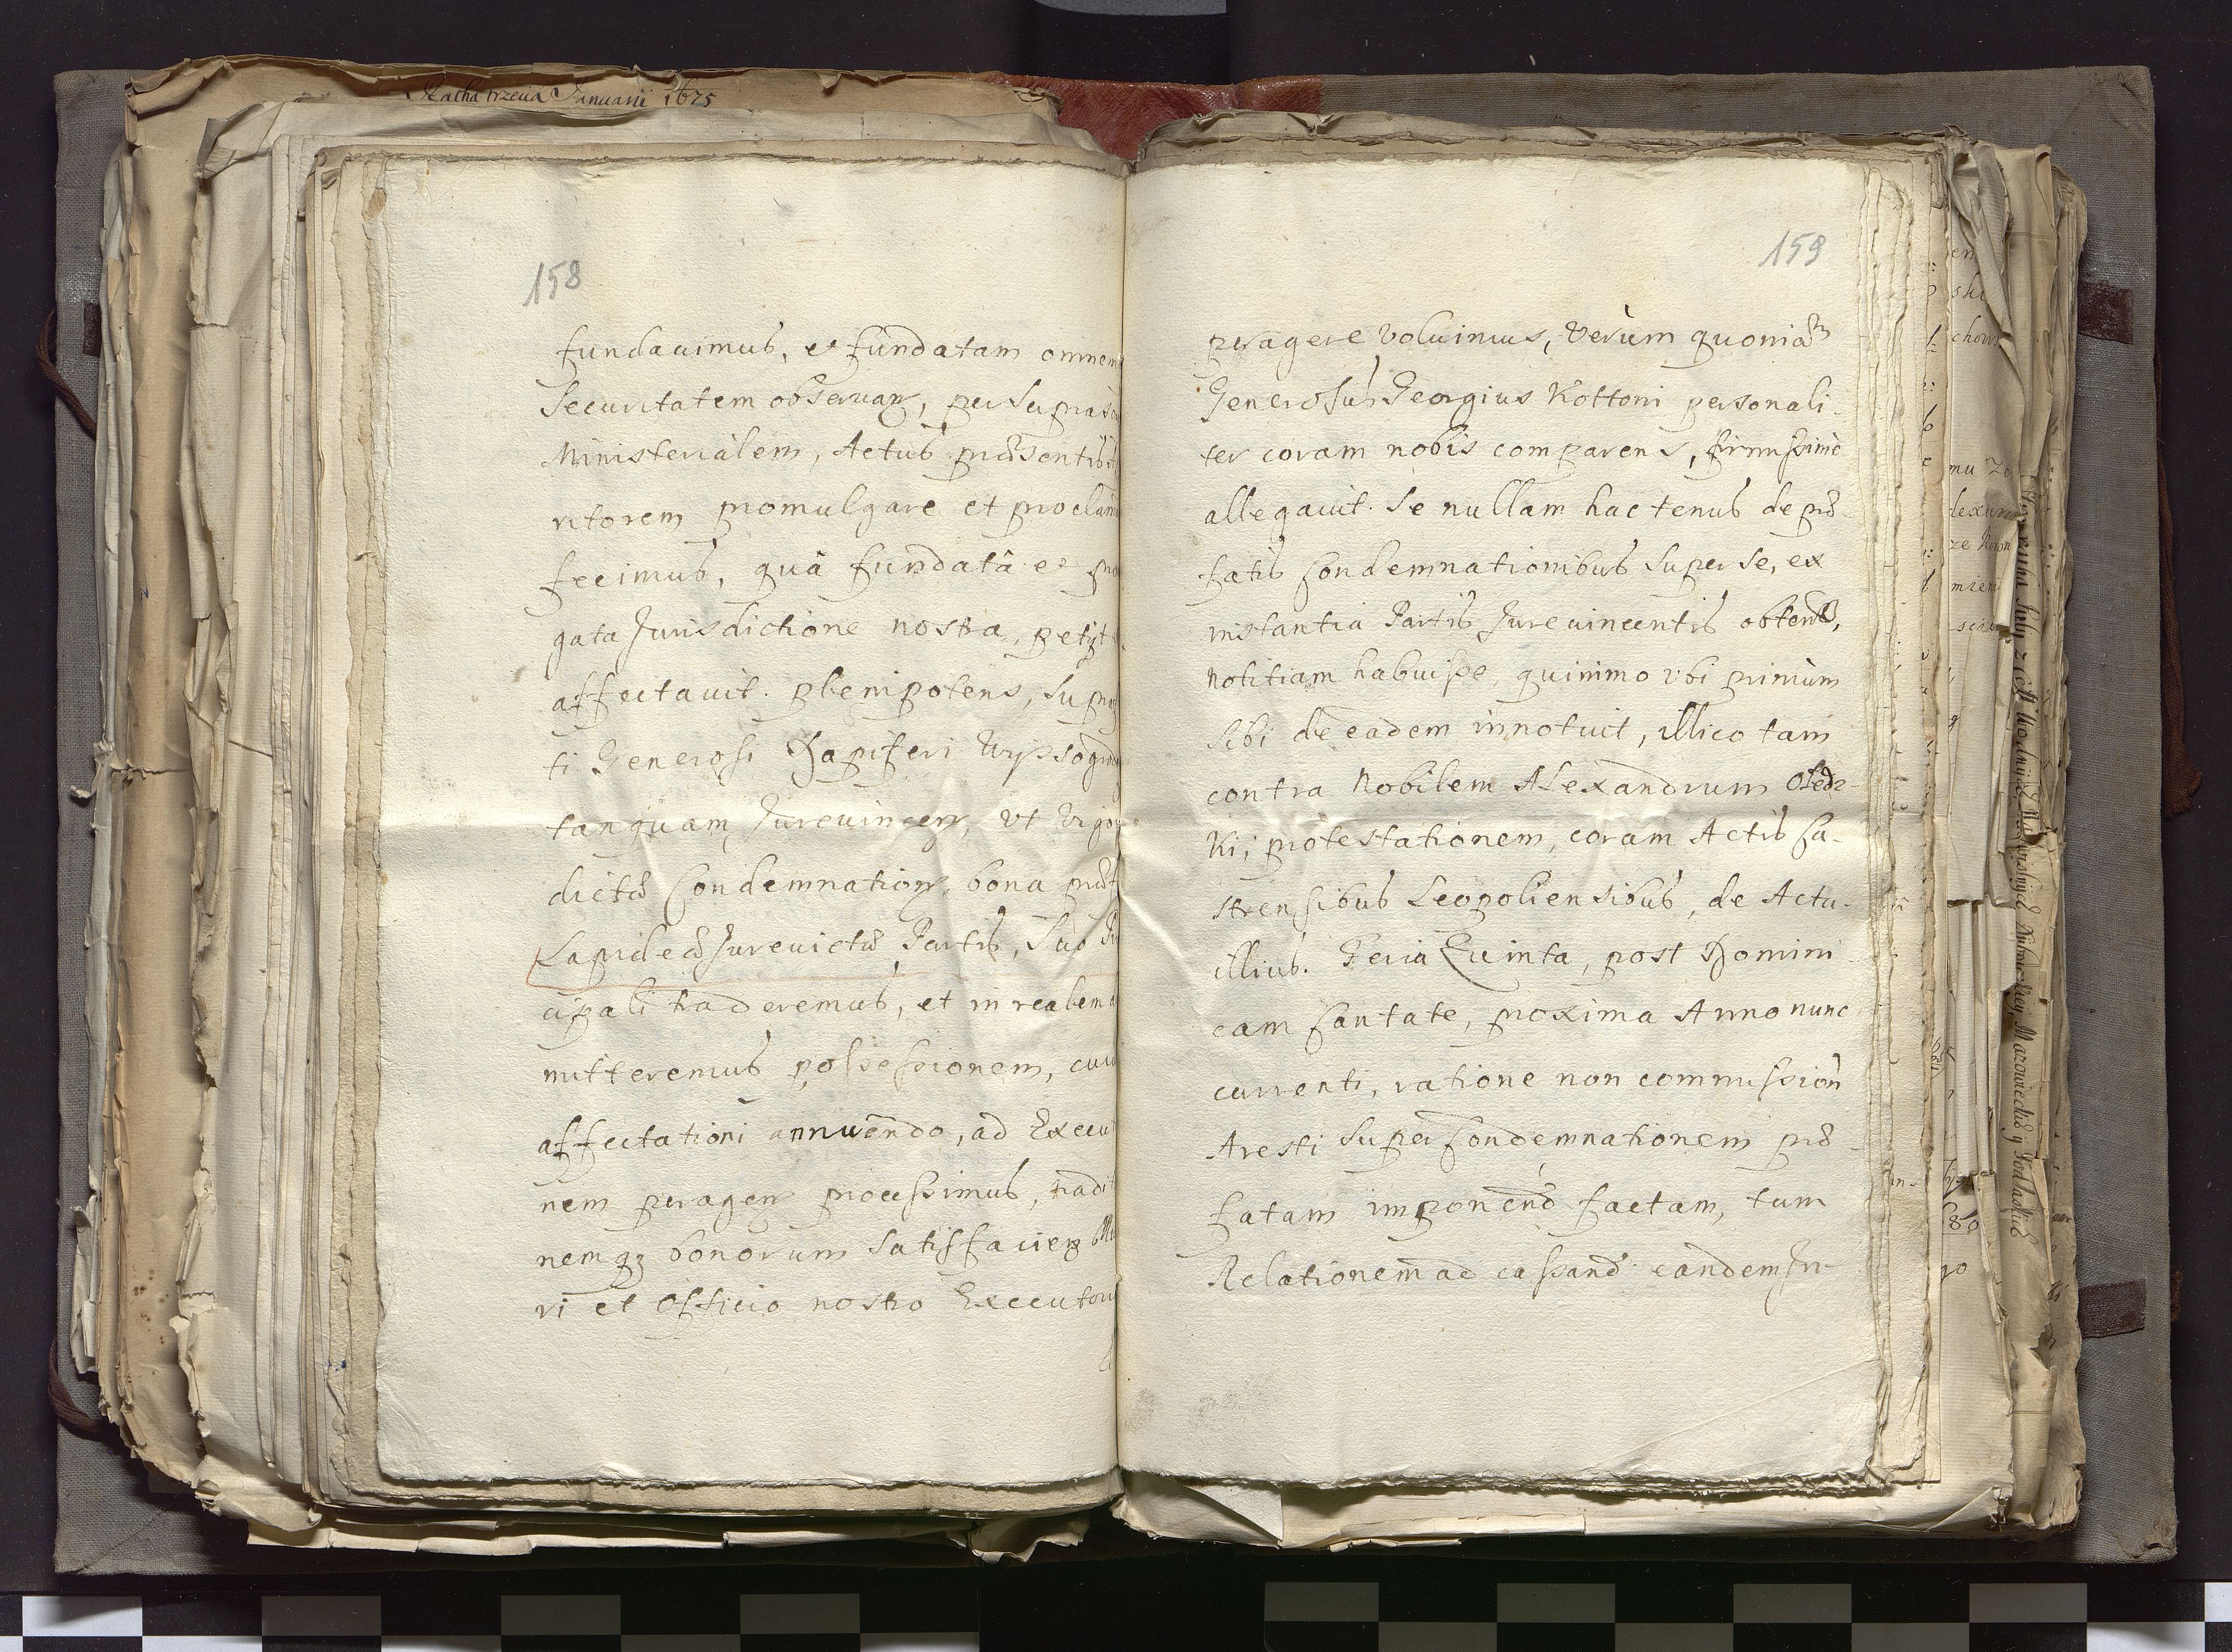 Ratha trzecia Januarii 1675
158
fundauimus, et fundatam omnem
Securitatem obseruan̄, per Supras
Ministerialem, Actus præsentis
ritorem promulgare et proclam
fecimus, quâ fundatâ et pro
gata Jurisdictione nostra, petÿt
affectauit. plenipotens, Supra
ti Generosi Dapiferi Wyssogro
tanquam Jureuincen̄, vt Vigo
dictæ Condemnation̄, bona præt
Lapideæ Jureuictæ Partis, Suo Pri
cipali traderemus, et in realem
mitteremus possessionem, cui
affectationi annuendo, ad Execut
nem peragen̄ processimus, tradit
nemqȝ bonorum Satisfacien̄
ri et Officio nostro Executori
159
peragere voluimus, Verùm quoniãm
Generosus Georgius Kottoni personali-
ter coram nobis comparens, firmissimè
allegauit. Se nullam hactenus de præ-
fatis Condemnationibus Super Se, ex
instantia Partis Jureuincentis obtent,
Notitiam habuisse, quinimo vbi primùm
Sibi de eadem innotuit, illico tam
contra Nobilem Alexandrum Oledz-
Ki; protestationem, coram Actis Ca-
strensibus Leopoliensibus, de Actu
illius. Feria Quinta, post Domini-
cam Cantate, proxima Anno nunc
currenti, ratione non commission̄
Aresti Super Condemnationem præ-
fatam imponend̄ factam, tum
Relationem ad cassand̄ eandem In-